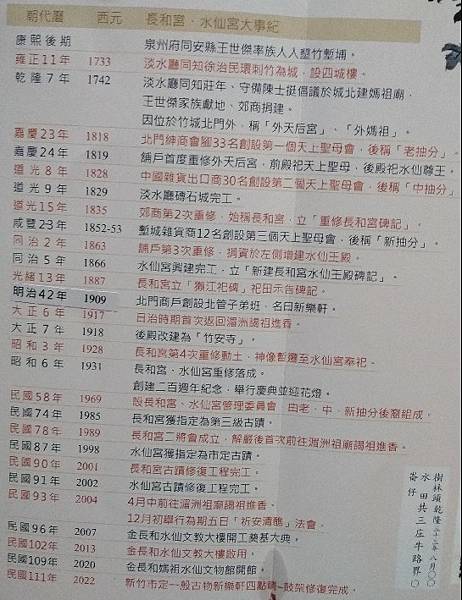 朝代曆 西元 長和宮‧水仙宮大事紀
康熙後期 泉州府同安縣王世傑率族人入墾竹塹埔。
雍正11年 1733 淡水廳同知徐治民環刺竹為城，設四城樓。
乾隆7年 1742 淡水廳同知莊年、守備陳士挺倡議於城北建媽祖廟，
王世傑家族獻地、郊商捐建。
因位於竹城北門外，稱「外天后宮」、「外媽祖」。
嘉慶23年 1818 北門紳商會腳33名創設第一個天上聖母會，後稱「老抽分」。
嘉慶24年 1819 舖戶首度重修外天后宮，前殿祀天上聖母，後殿祀水仙尊王。
道光8年 1828 中國雜貨出口商30名創設第二個天上聖母會，後稱「中抽分」。
道光9年 1829 淡水廳磚石城完工。
道光15年 1835 郊商第2次重修，始稱長和宮，立「重修長和宮碑記」。
咸豐23年 1852-53 塹城雜貨商12名創設第三個天上聖母會，後稱「新抽分」。
同治2年 1863 舖戶第3次重修，捐貲於左側增建水仙王殿。
同治5年 1866 水仙宮興建完工，立「新建長和宮水仙王殿碑記」。
光緒13年 1887 長和宮立「獺江祀碑」祀田示告碑記。
明治42年 1909 北門商戶創設北管子弟班，名曰新樂軒。
大正6年 1917 日治時期首次返回湄洲謁祖進香。
大正7年 1918 後殿改建為「竹安寺」。
昭和3年 1928 長和宮第4次重修動土，神像暫遷至水仙宮奉祀。
昭和6年 1931 長和宮‧水仙宮重修落成。
創建二百週年紀念，舉行慶典並迎花燈。
民國58年 1969 設長和宮、水仙宮管理委員會，由老、中、新抽分後裔組成。
民國74年 1985 長和宮獲指定為第三級古蹟。
民國78年 1989 長和宮二將會成立，解嚴後首次前往湄洲祖廟謁祖進香。
民國87年 1998 水仙宮獲指定為市定古蹟。
民國90年 2001 長和宮古蹟修復工程完工。
民國91年 2002 水仙宮古蹟修復工程完工。
民國93年 2004 4月中前往湄洲祖廟謁祖進香。
12月初舉行為期五日「祈安清醮」法會。
民國96年 2007 金長和水仙文教大樓開工奠基大典。
民國102年 2013 金長和水仙文教大樓啟用。
民國109年 2020 金長和媽祖水仙文物館開館。
民國111年 2022 新竹市定一般古物新樂軒四點鐤-鼓架修復完成。
樹林頭乾隆三十二年八月〇〇
水田共三庄牛路界〇
崙仔